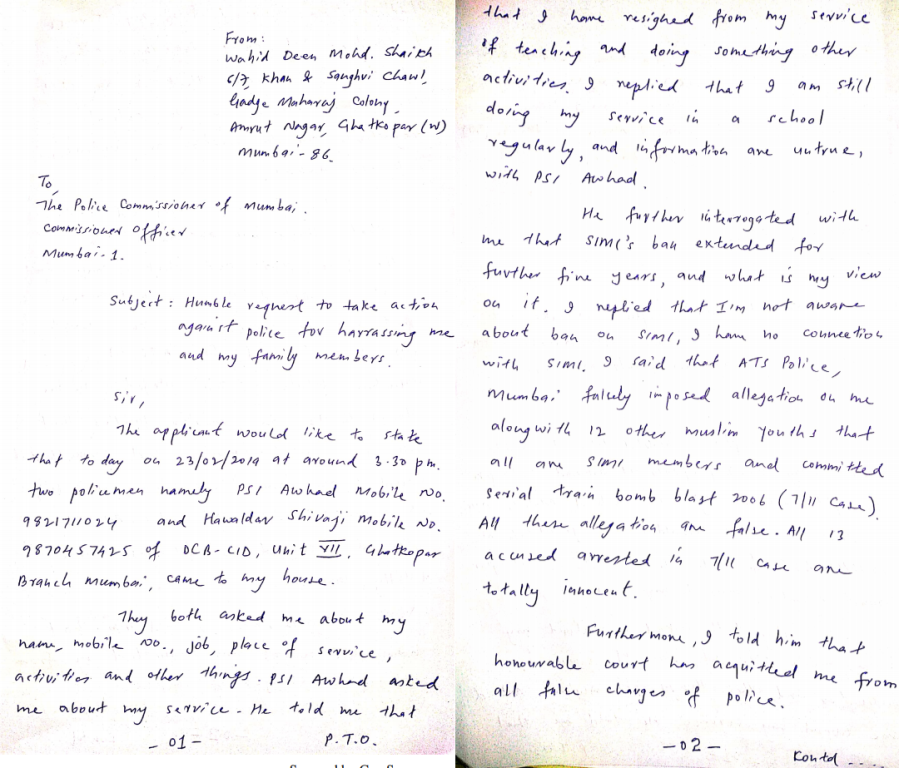 From:
Wahid Deen Mohd. Shaikh
C/7, Khan & Sanghvi Chawl,
Gadge Maharaj Colony,
Amrut Nagar, Ghatkopar (W)
Mumbai-86.
To,
The Police Commissioner of Mumbai.
Commissioner Officer
Mumbai-1.
Subject: Humble request to take action
against police for harrassing me
and my family members.
Sir,
The applicant would like to state
that today on 23/02/2019 at around 3.30 pm.
two policemen namely PSI Awhad Mobile No.
9821711024 and Hawaldar Shivaji Mobile No.
9870457425 of DCB-CID, Unit VII, Ghatkopar
Branch Mumbai, came to my house.
They both asked me about my
name, mobile No., job, place of service,
activities and other things. PSI Awhad asked
me about my service. He told me that
- 01 - P.T.O.
that I have resighed from my service
of teaching and doing something other
activities. I replied that I am still
doing my service in a school
regularly, and information are untrue,
with PSI Awhad.
He further interrogated with
me that SIMI's ban extended for
further five years, and what is my view
on it. I replied that I'm not aware
about ban on SIMI, I have no connection
with SIMI. I said that ATS Police,
Mumbai falsely imposed allegation on me
alongwith 12 other muslim youths that
all are SIMI members and committed
serial train bomb blast 2006 (7/11 case).
All these allegation are false. All 13
accused arrested in 7/11 case are
totally innocent.
Furthermore, I told him that
honourable court has acquitted me from
all false charges of police.
- 02 -
Kontd ....